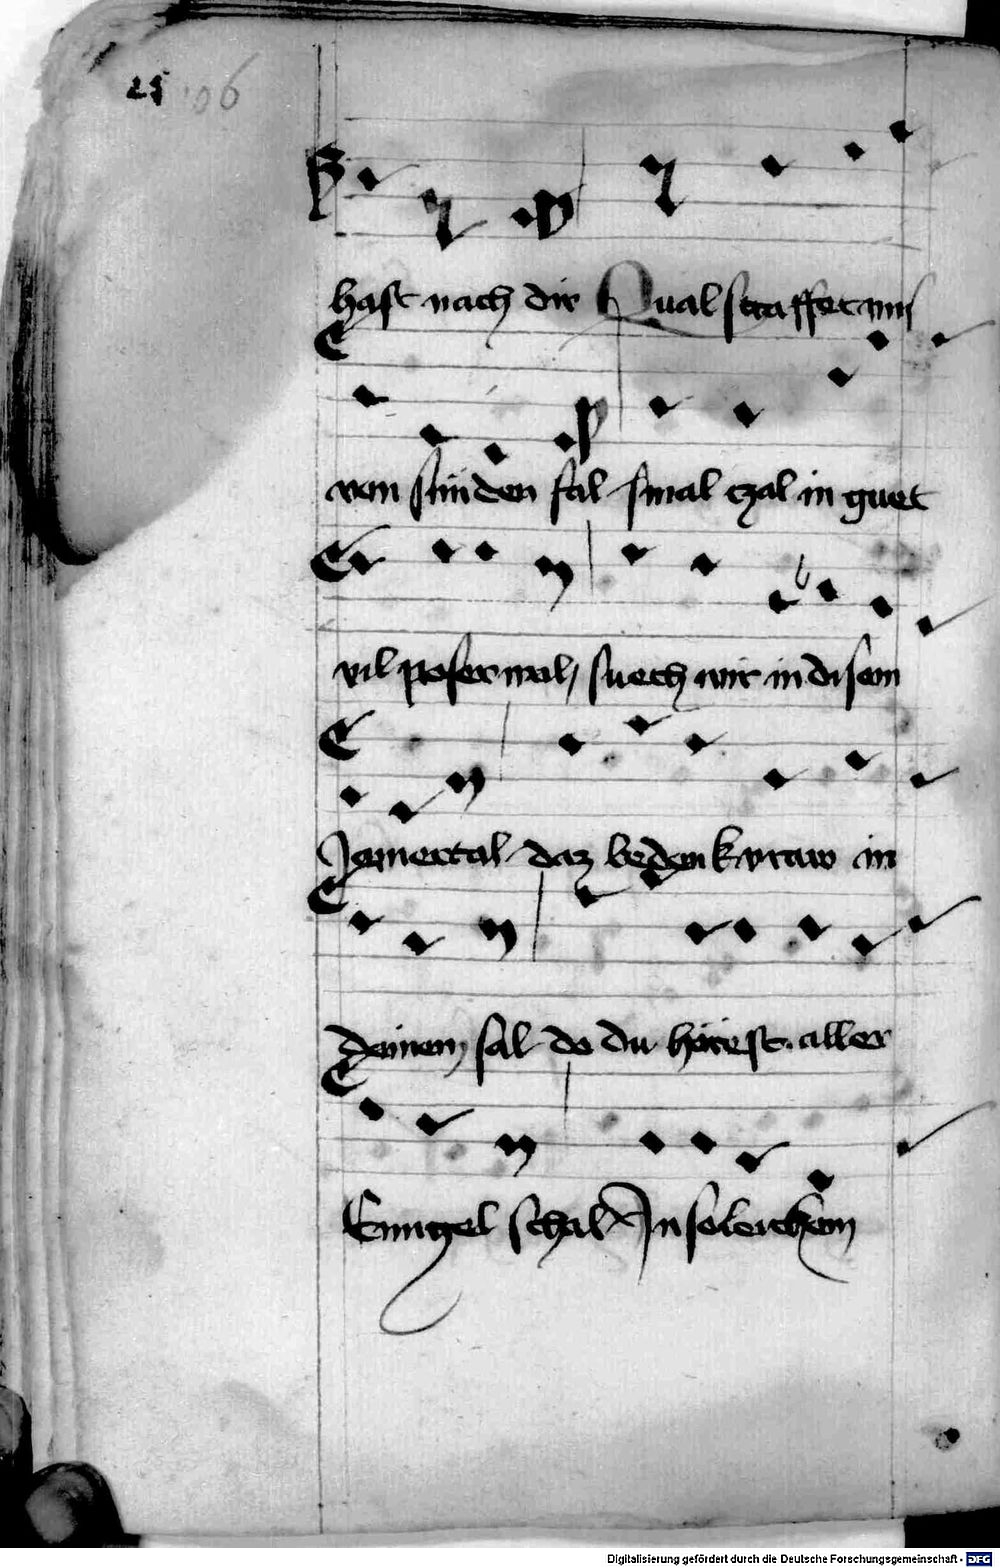 25 106
hast nach dir Qual straffet uns
vom sünden fal smal czal in guet
vil poser mal, suech wir in disem
Jamertal daz bedenk vraw in
deinem sal do du hörest aller
Enngel schal In solerchem
Digitalisierung gefördert durch die Deutsche Forschungsgemeinschaft - DFG